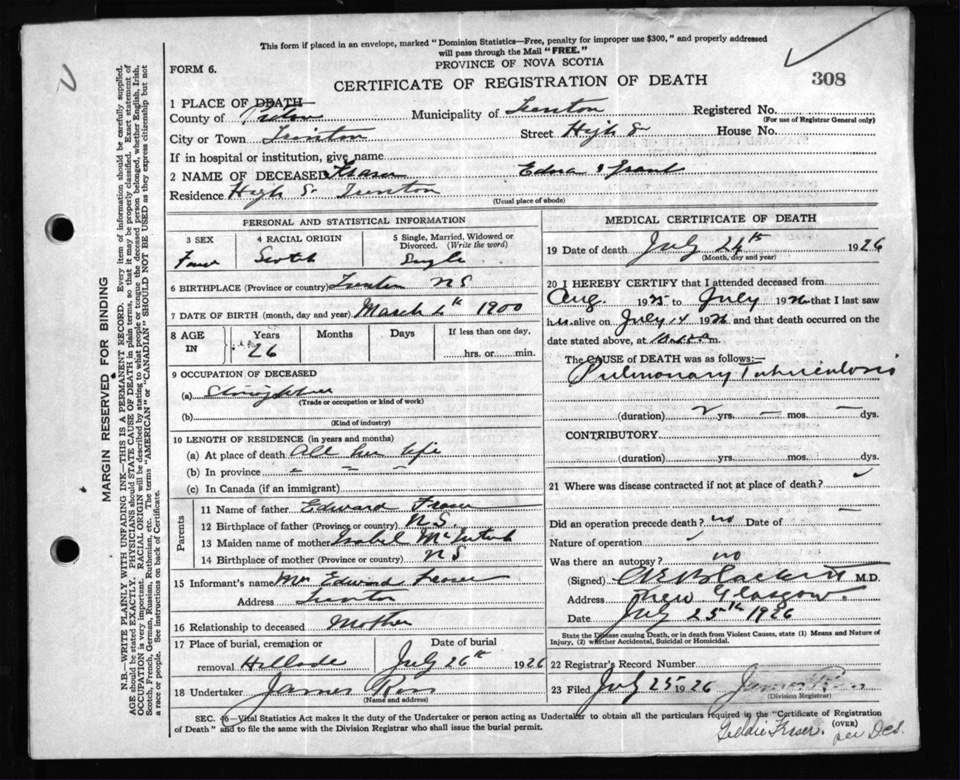 This form if placed in an envelope, marked "Dominion Statistics—Free, penalty for improper use $300," and properly addressed
will pass through the Mail "FREE."
PROVINCE OF NOVA SCOTIA
FORM 6.
CERTIFICATE OF REGISTRATION OF DEATH
308
1 PLACE OF DEATH
County of Pictou Municipality of Trenton Registered No.
(For use of Registrar General only)
City or Town Trenton Street High St House No.
If in hospital or institution, give name
2 NAME OF DECEASED Fraser Edna Grant
Residence High St Trenton
(Usual place of abode)
PERSONAL AND STATISTICAL INFORMATION
3 SEX 4 RACIAL ORIGIN 5 Single, Married, Widowed or Divorced. (Write the word)
Scotch Single
6 BIRTHPLACE (Province or country) Trenton NS
7 DATE OF BIRTH (month, day and year) March 1900
8 AGE IN Years Months Days If less than one day,
26 hrs. or min.
9 OCCUPATION OF DECEASED
(a)
(Trade or occupation or kind of work)
(b)
(Kind of industry)
10 LENGTH OF RESIDENCE (in years and months)
(a) At place of death All her life
(b) In province " — —
(c) In Canada (if an immigrant)
Parents
11 Name of father Edward Fraser
12 Birthplace of father (Province or country) NS.
13 Maiden name of mother Isabel McIntosh
14 Birthplace of mother (Province or country) NS
15 Informant's name Mrs Edward Fraser
Address Trenton
16 Relationship to deceased Mother
17 Place of burial, cremation or removal Date of burial
July 26th 1926
18 Undertaker James Ross
(Name and address)
MEDICAL CERTIFICATE OF DEATH
19 Date of death July 24th 1926
(Month, day and year)
20 I HEREBY CERTIFY that I attended deceased from
Aug. 1925 to July 1926 that I last saw
h alive on July 14 1926 and that death occurred on the
date stated above, at m.
The CAUSE OF DEATH was as follows:—
Pulmonary Tuberculosis
(duration) 2 yrs. — mos. — dys.
CONTRIBUTORY
(duration) yrs. mos. dys.
21 Where was disease contracted if not at place of death?
Did an operation precede death? no Date of —
Nature of operation
Was there an autopsy? no
(Signed) M.D.
Address New Glasgow.
Date July 25th 1926
State the Disease causing Death, or in death from Violent Causes, state (1) Means and Nature of
Injury, (2) whether Accidental, Suicidal or Homicidal.
22 Registrar's Record Number
23 Filed July 25 1926
(Division Registrar)
SEC. 46—Vital Statistics Act makes it the duty of the Undertaker or person acting as Undertaker to obtain all the particulars required in the "Certificate of Registration
of Death" and to file the same with the Division Registrar who shall issue the burial permit. (OVER)
Geddie Fraser. per Dcs.
MARGIN RESERVED FOR BINDING
N.B.—WRITE PLAINLY WITH UNFADING INK—THIS IS A PERMANENT RECORD. Every item of information should be carefully supplied.
AGE should be stated EXACTLY. PHYSICIANS should STATE CAUSE OF DEATH in plain terms, so that it may be properly classified. Exact statement of
OCCUPATION is very important. RACIAL ORIGIN will be described by stating to what people or tongue the deceased person belonged, whether English, Irish,
Scotch, French, German, Russian, Ruthenian, etc. The terms "AMERICAN" or "CANADIAN" SHOULD NOT BE USED as they express citizenship but not
a race or people. See instructions on back of Certificate.